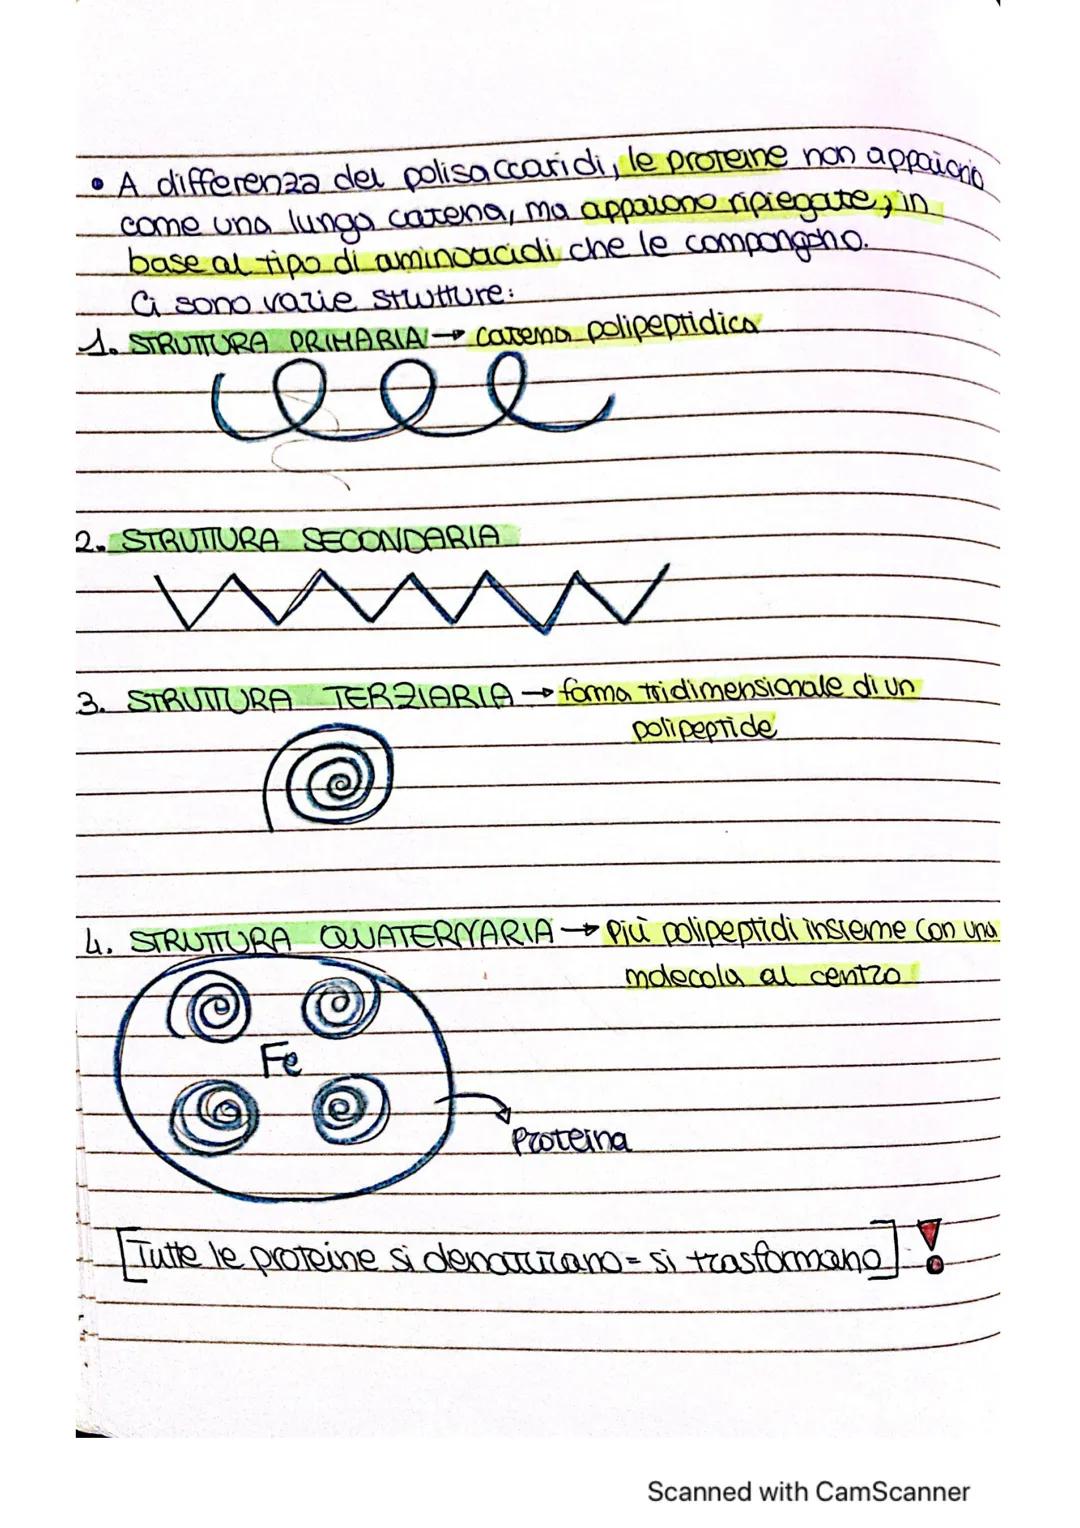 • A differenza dei polisaccaridi, le proteine non appaiono
come una lunga catena, ma appaiono ripiegate, in
base al tipo di aminoacidi che le compongono.
Ci sono varie strutture:
1. STRUTTURA PRIMARIA → catena polipeptidica
2. STRUTTURA SECONDARIA
3. STRUTTURA TERZIARIA → forma tridimensionale di un
polipeptide
4. STRUTTURA QUATERNARIA → Più polipeptidi insieme con una
molecola al centro
Fe
Proteina
[Tutte le proteine si denaturano = si trasformano] !
Scanned with CamScanner